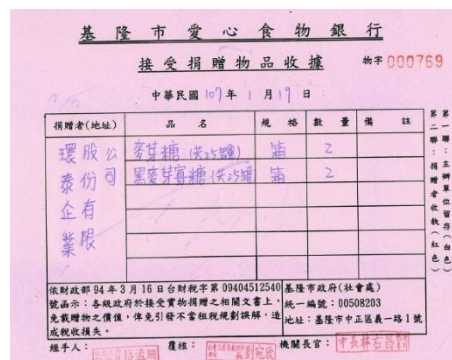 基隆市愛心食物銀行
接受捐贈物品收據
物字 000769
中華民國 107 年 1 月 19 日
捐贈者(地址) 品名 規格 數量 備註
環泰企業股份有限公司
麥芽糖 (共25罐) 箱 2
黑麥芽寡糖 (共25罐) 箱 2
第一聯:主辦單位留存(白色)
第二聯:捐贈者收執(紅色)
依財政部 94 年 3 月 16 日台財稅字第 09404512540
號函示:各級政府於接受實物捐贈之相關文書上,
免載贈物之價值,俾免引發不當租稅規劃誤解,造
成稅收損失。
基隆市政府(社會處)
統一編號:00508203
地址:基隆市中正區義一路 1 號
經手人: 覆核: 機關長官: